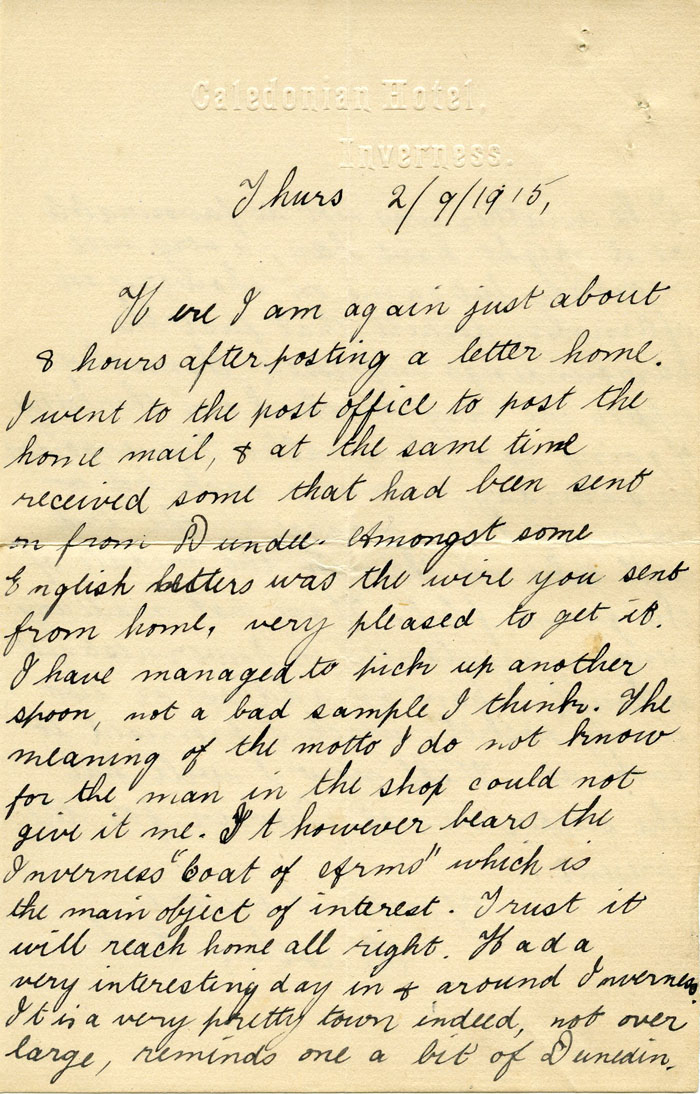 Caledonian Hotel,
Inverness.
Thurs 2/9/1915,
Here I am again just about
8 hours after posting a letter home.
I went to the post office to post the
home mail, & at the same time
received some that had been sent
on from Dundee. Amongst some
English letters was the wire you sent
from home, very pleased to get it.
I have managed to pick up another
spoon, not a bad sample I think. The
meaning of the motto I do not know
for the man in the shop could not
give it me. It however bears the
Inverness "Coat of Arms" which is
the main object of interest. Trust it
will reach home all right. Had a
very interesting day in & around Inverness.
It is a very pretty town indeed, not over
large, reminds one a bit of Dunedin.